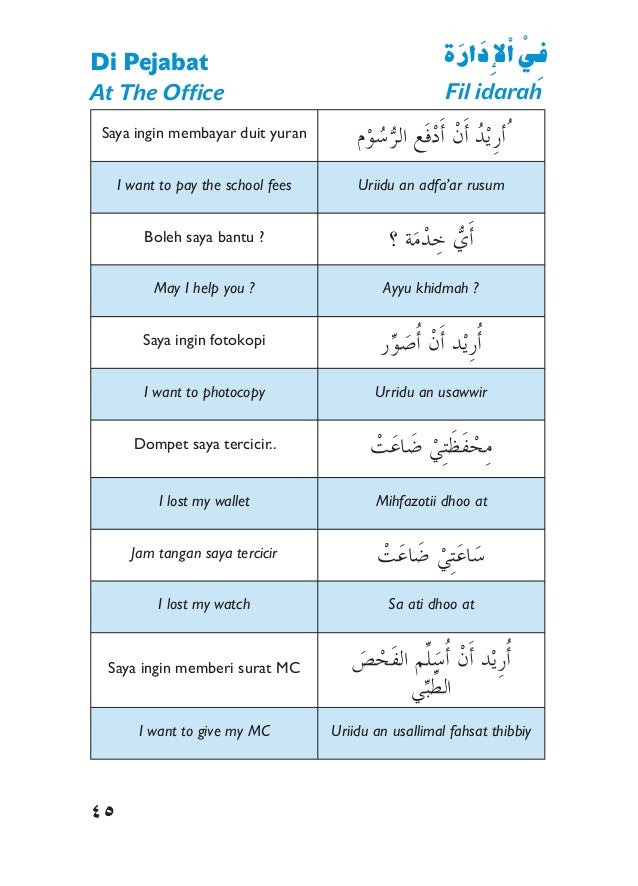 Di Pejabat
فيْ الْإِدَارَة
At The Office
Fil idarah
Saya ingin membayar duit yuran
أُرِيْدُ أَنْ أَدْفَع الرُّسُوْم
I want to pay the school fees
Uriidu an adfa’ar rusum
Boleh saya bantu ?
أَيُّ خِدْمَة ؟
May I help you ?
Ayyu khidmah ?
Saya ingin fotokopi
أُرِيْد أَنْ أُصَوِّر
I want to photocopy
Urridu an usawwir
Dompet saya tercicir..
مِحْفَظَتِيْ ضَاعَتْ
I lost my wallet
Mihfazotii dhoo at
Jam tangan saya tercicir
سَاعَتِيْ ضَاعَتْ
I lost my watch
Sa ati dhoo at
Saya ingin memberi surat MC
أُرِيْد أَنْ أُسَلِّم الفَحْصَ
الطِّبِّي
I want to give my MC
Uriidu an usallimal fahsat thibbiy
٤٥